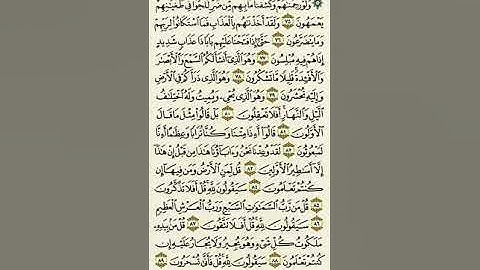 ۞ وَلَوْ رَحِمْنَٰهُمْ وَكَشَفْنَا مَا بِهِم مِّن ضُرٍّ لَّلَجُّوا۟ فِى طُغْيَٰنِهِمْ
يَعْمَهُونَ ٧٥ وَلَقَدْ أَخَذْنَٰهُم بِٱلْعَذَابِ فَمَا ٱسْتَكَانُوا۟ لِرَبِّهِمْ
وَمَا يَتَضَرَّعُونَ ٧٦ حَتَّىٰٓ إِذَا فَتَحْنَا عَلَيْهِم بَابًا ذَا عَذَابٍ شَدِيدٍ
إِذَا هُمْ فِيهِ مُبْلِسُونَ ٧٧ وَهُوَ ٱلَّذِىٓ أَنشَأَ لَكُمُ ٱلسَّمْعَ وَٱلْأَبْصَٰرَ
وَٱلْأَفْـِٔدَةَ قَلِيلًا مَّا تَشْكُرُونَ ٧٨ وَهُوَ ٱلَّذِى ذَرَأَكُمْ فِى ٱلْأَرْضِ
وَإِلَيْهِ تُحْشَرُونَ ٧٩ وَهُوَ ٱلَّذِى يُحْىِۦ وَيُمِيتُ وَلَهُ ٱخْتِلَٰفُ
ٱلَّيْلِ وَٱلنَّهَارِ أَفَلَا تَعْقِلُونَ ٨٠ بَلْ قَالُوا۟ مِثْلَ مَا قَالَ
ٱلْأَوَّلُونَ ٨١ قَالُوٓا۟ أَءِذَا مِتْنَا وَكُنَّا تُرَابًا وَعِظَٰمًا أَءِنَّا
لَمَبْعُوثُونَ ٨٢ لَقَدْ وُعِدْنَا نَحْنُ وَءَابَآؤُنَا هَٰذَا مِن قَبْلُ إِنْ هَٰذَآ
إِلَّآ أَسَٰطِيرُ ٱلْأَوَّلِينَ ٨٣ قُل لِّمَنِ ٱلْأَرْضُ وَمَن فِيهَآ إِن
كُنتُمْ تَعْلَمُونَ ٨٤ سَيَقُولُونَ لِلَّهِ قُلْ أَفَلَا تَذَكَّرُونَ
٨٥ قُلْ مَن رَّبُّ ٱلسَّمَٰوَٰتِ ٱلسَّبْعِ وَرَبُّ ٱلْعَرْشِ ٱلْعَظِيمِ
٨٦ سَيَقُولُونَ لِلَّهِ قُلْ أَفَلَا تَتَّقُونَ ٨٧ قُلْ مَنۢ بِيَدِهِۦ
مَلَكُوتُ كُلِّ شَىْءٍ وَهُوَ يُجِيرُ وَلَا يُجَارُ عَلَيْهِ إِن
كُنتُمْ تَعْلَمُونَ ٨٨ سَيَقُولُونَ لِلَّهِ قُلْ فَأَنَّىٰ تُسْحَرُونَ ٨٩